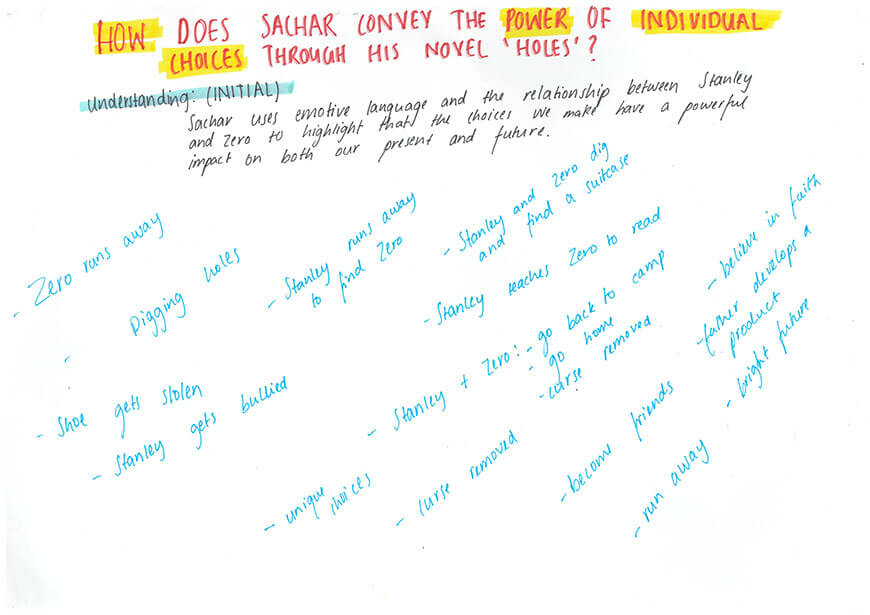 HOW DOES SACHAR CONVEY THE POWER OF INDIVIDUAL
CHOICES THROUGH HIS NOVEL 'HOLES'?
Understanding: (INITIAL)
Sachar uses emotive language and the relationship between Stanley
and Zero to highlight that the choices we make have a powerful
impact on both our present and future.
- Zero runs away
- Digging holes
- Stanley runs away
to find Zero
- Stanley and Zero dig
and find a suitcase
- Stanley teaches Zero to read
- Shoe gets stolen
- Stanley gets bullied
- Stanley + Zero: - go back to camp
- go home
- curse removed
- believe in faith
- father develops a
product
- bright future
- unique
choices
- curse removed
- become friends
- run away